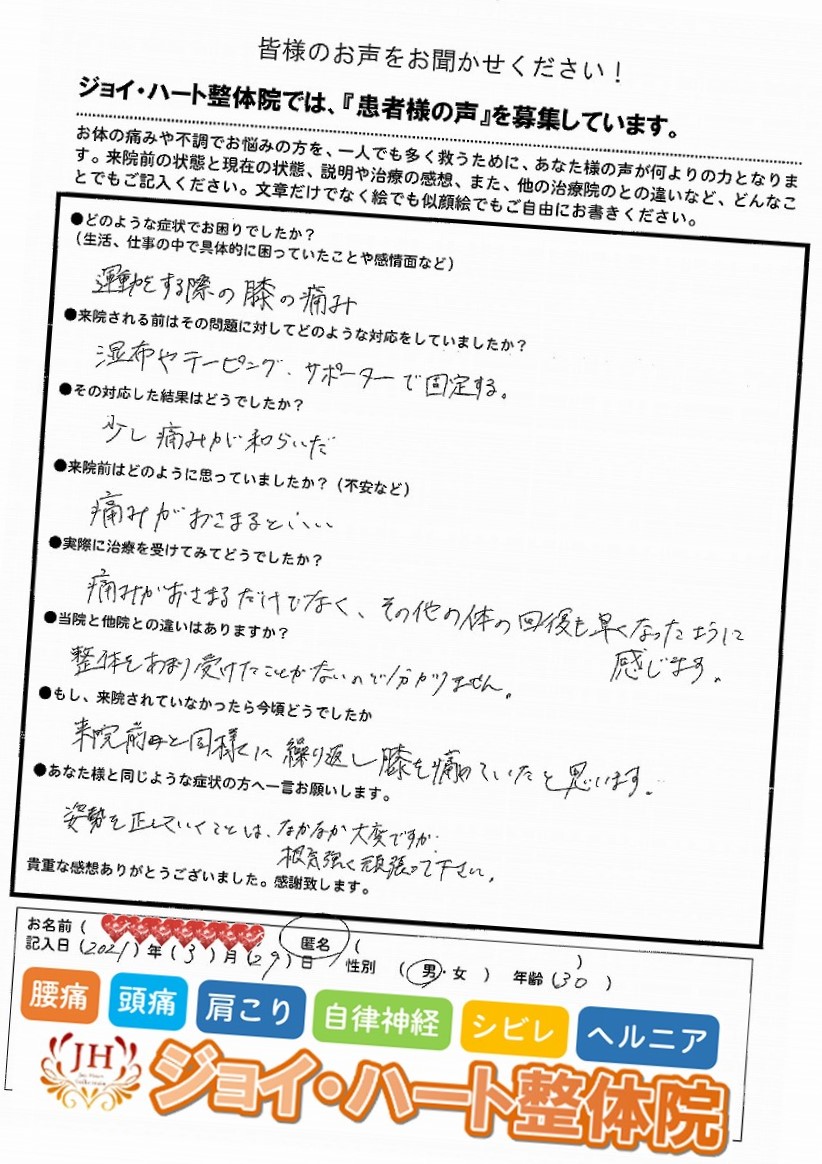 皆様のお声をお聞かせください！
ジョイ・ハート整体院では、『患者様の声』を募集しています。
お体の痛みや不調でお悩みの方を、一人でも多く救うために、あなた様の声が何よりの力となりま
す。来院前の状態と現在の状態、説明や治療の感想、また、他の治療院のとの違いなど、どんなこ
とでもご記入ください。文章だけでなく絵でも似顔絵でもご自由にお書きください。
●どのような症状でお困りでしたか？
（生活、仕事の中で具体的に困っていたことや感情面など）
運動をする際の膝の痛み
●来院される前はその問題に対してどのような対応をしていましたか？
湿布やテーピング、サポーターで固定する。
●その対応した結果はどうでしたか？
少し痛みが和らいだ
●来院前はどのように思っていましたか？（不安など）
痛みがおさまるといい
●実際に治療を受けてみてどうでしたか？
痛みがおさまるだけでなく、その他の体の回復も早くなったように
感じます。
●当院と他院との違いはありますか？
整体をあまり受けたことがないので分かりません。
●もし、来院されていなかったら今頃どうでしたか
来院前と同様に繰り返し膝を痛めていたと思います。
●あなた様と同じような症状の方へ一言お願いします。
姿勢を正していくことは、なかなか大変ですが、
根気強く頑張って下さい。
貴重な感想ありがとうございました。感謝致します。
お名前（ 匿名 （ ）
記入日（2021）年（3）月（29）日 性別 （ 男・女 ） 年齢（30 ）
腰痛 頭痛 肩こり 自律神経 シビレ ヘルニア
JH
ジョイ・ハート整体院